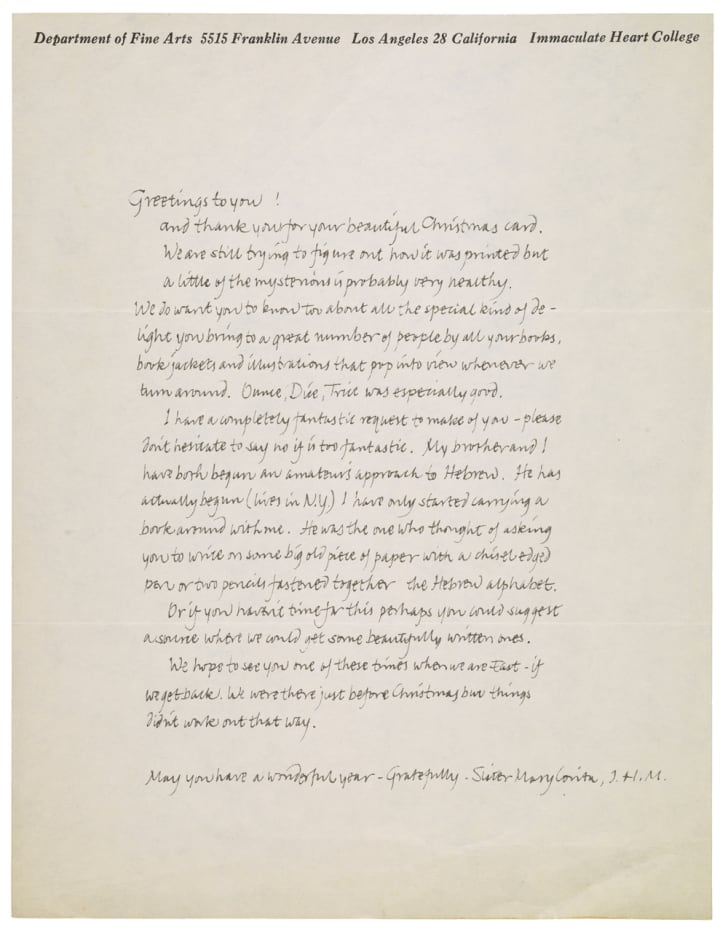 Department of Fine Arts 5515 Franklin Avenue Los Angeles 28 California Immaculate Heart College
Greetings to you !
and thank you for your beautiful Christmas card.
We are still trying to figure out how it was printed but
a little of the mysterious is probably very healthy.
We do want you to know too about all the special kind of de-
light you bring to a great number of people by all your books,
book jackets and illustrations that pop into view whenever we
turn around. Ounce, Dice, Trice was especially good.
I have a completely fantastic request to make of you - please
don't hesitate to say no if is too fantastic. My brother and I
have both begun an amateur's approach to Hebrew. He has
actually begun (lives in N.Y.) I have only started carrying a
book around with me. He was the one who thought of asking
you to write on some big old piece of paper with a chisel edged
pen or two pencils fastened together the Hebrew alphabet.
Or if you haven't time for this perhaps you could suggest
a source where we could get some beautifully written ones.
We hope to see you one of these times when we are East - if
we get back. We were there just before Christmas but things
didn't work out that way.
May you have a wonderful year - Gratefully - Sister Mary Corita, I.H.M.